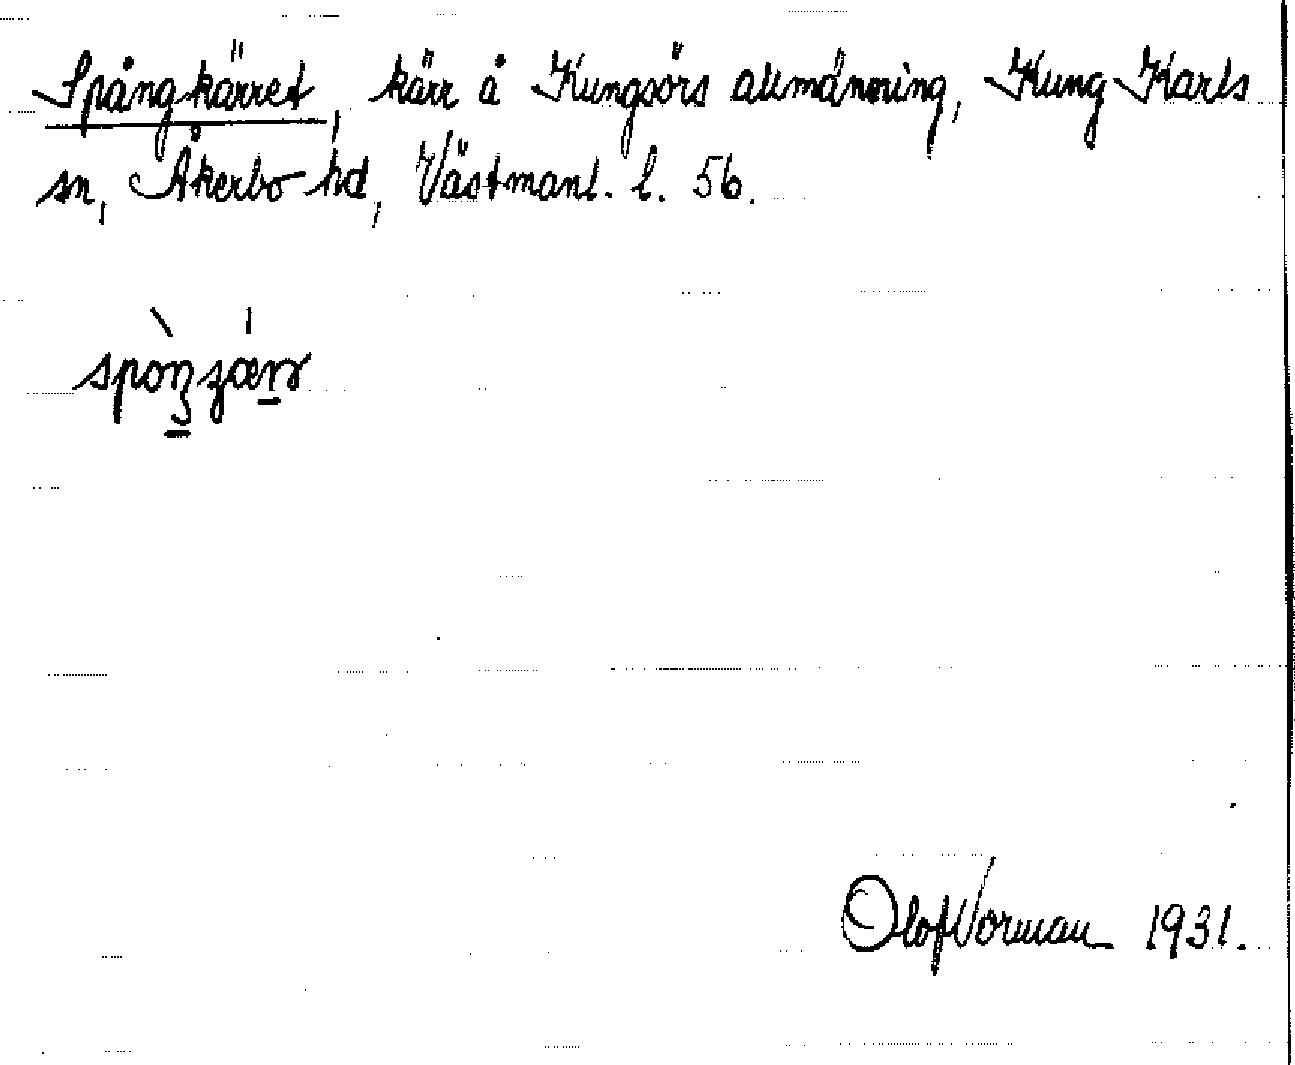 Spångkärret, kärr å Kungsörs allmänning, Kung Karls
sn, Åkerbo hd, Västmanl. l. 56.
Olof Norman 1931.